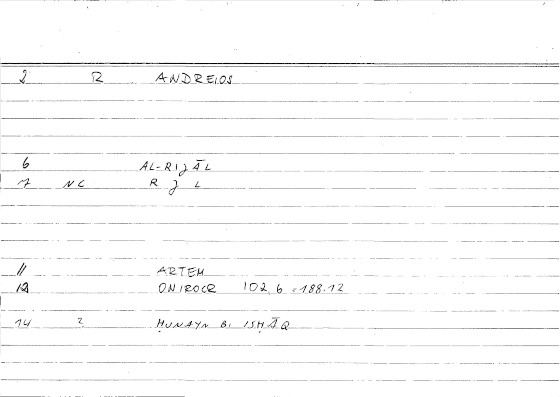 2 R ANDREIOS
6 AL-RIJĀL
7 NC R J L
11 ARTEM
12 ONIROCR 102,6 = 188.12
14 2 ḤUNAYN B. ISḤĀQ